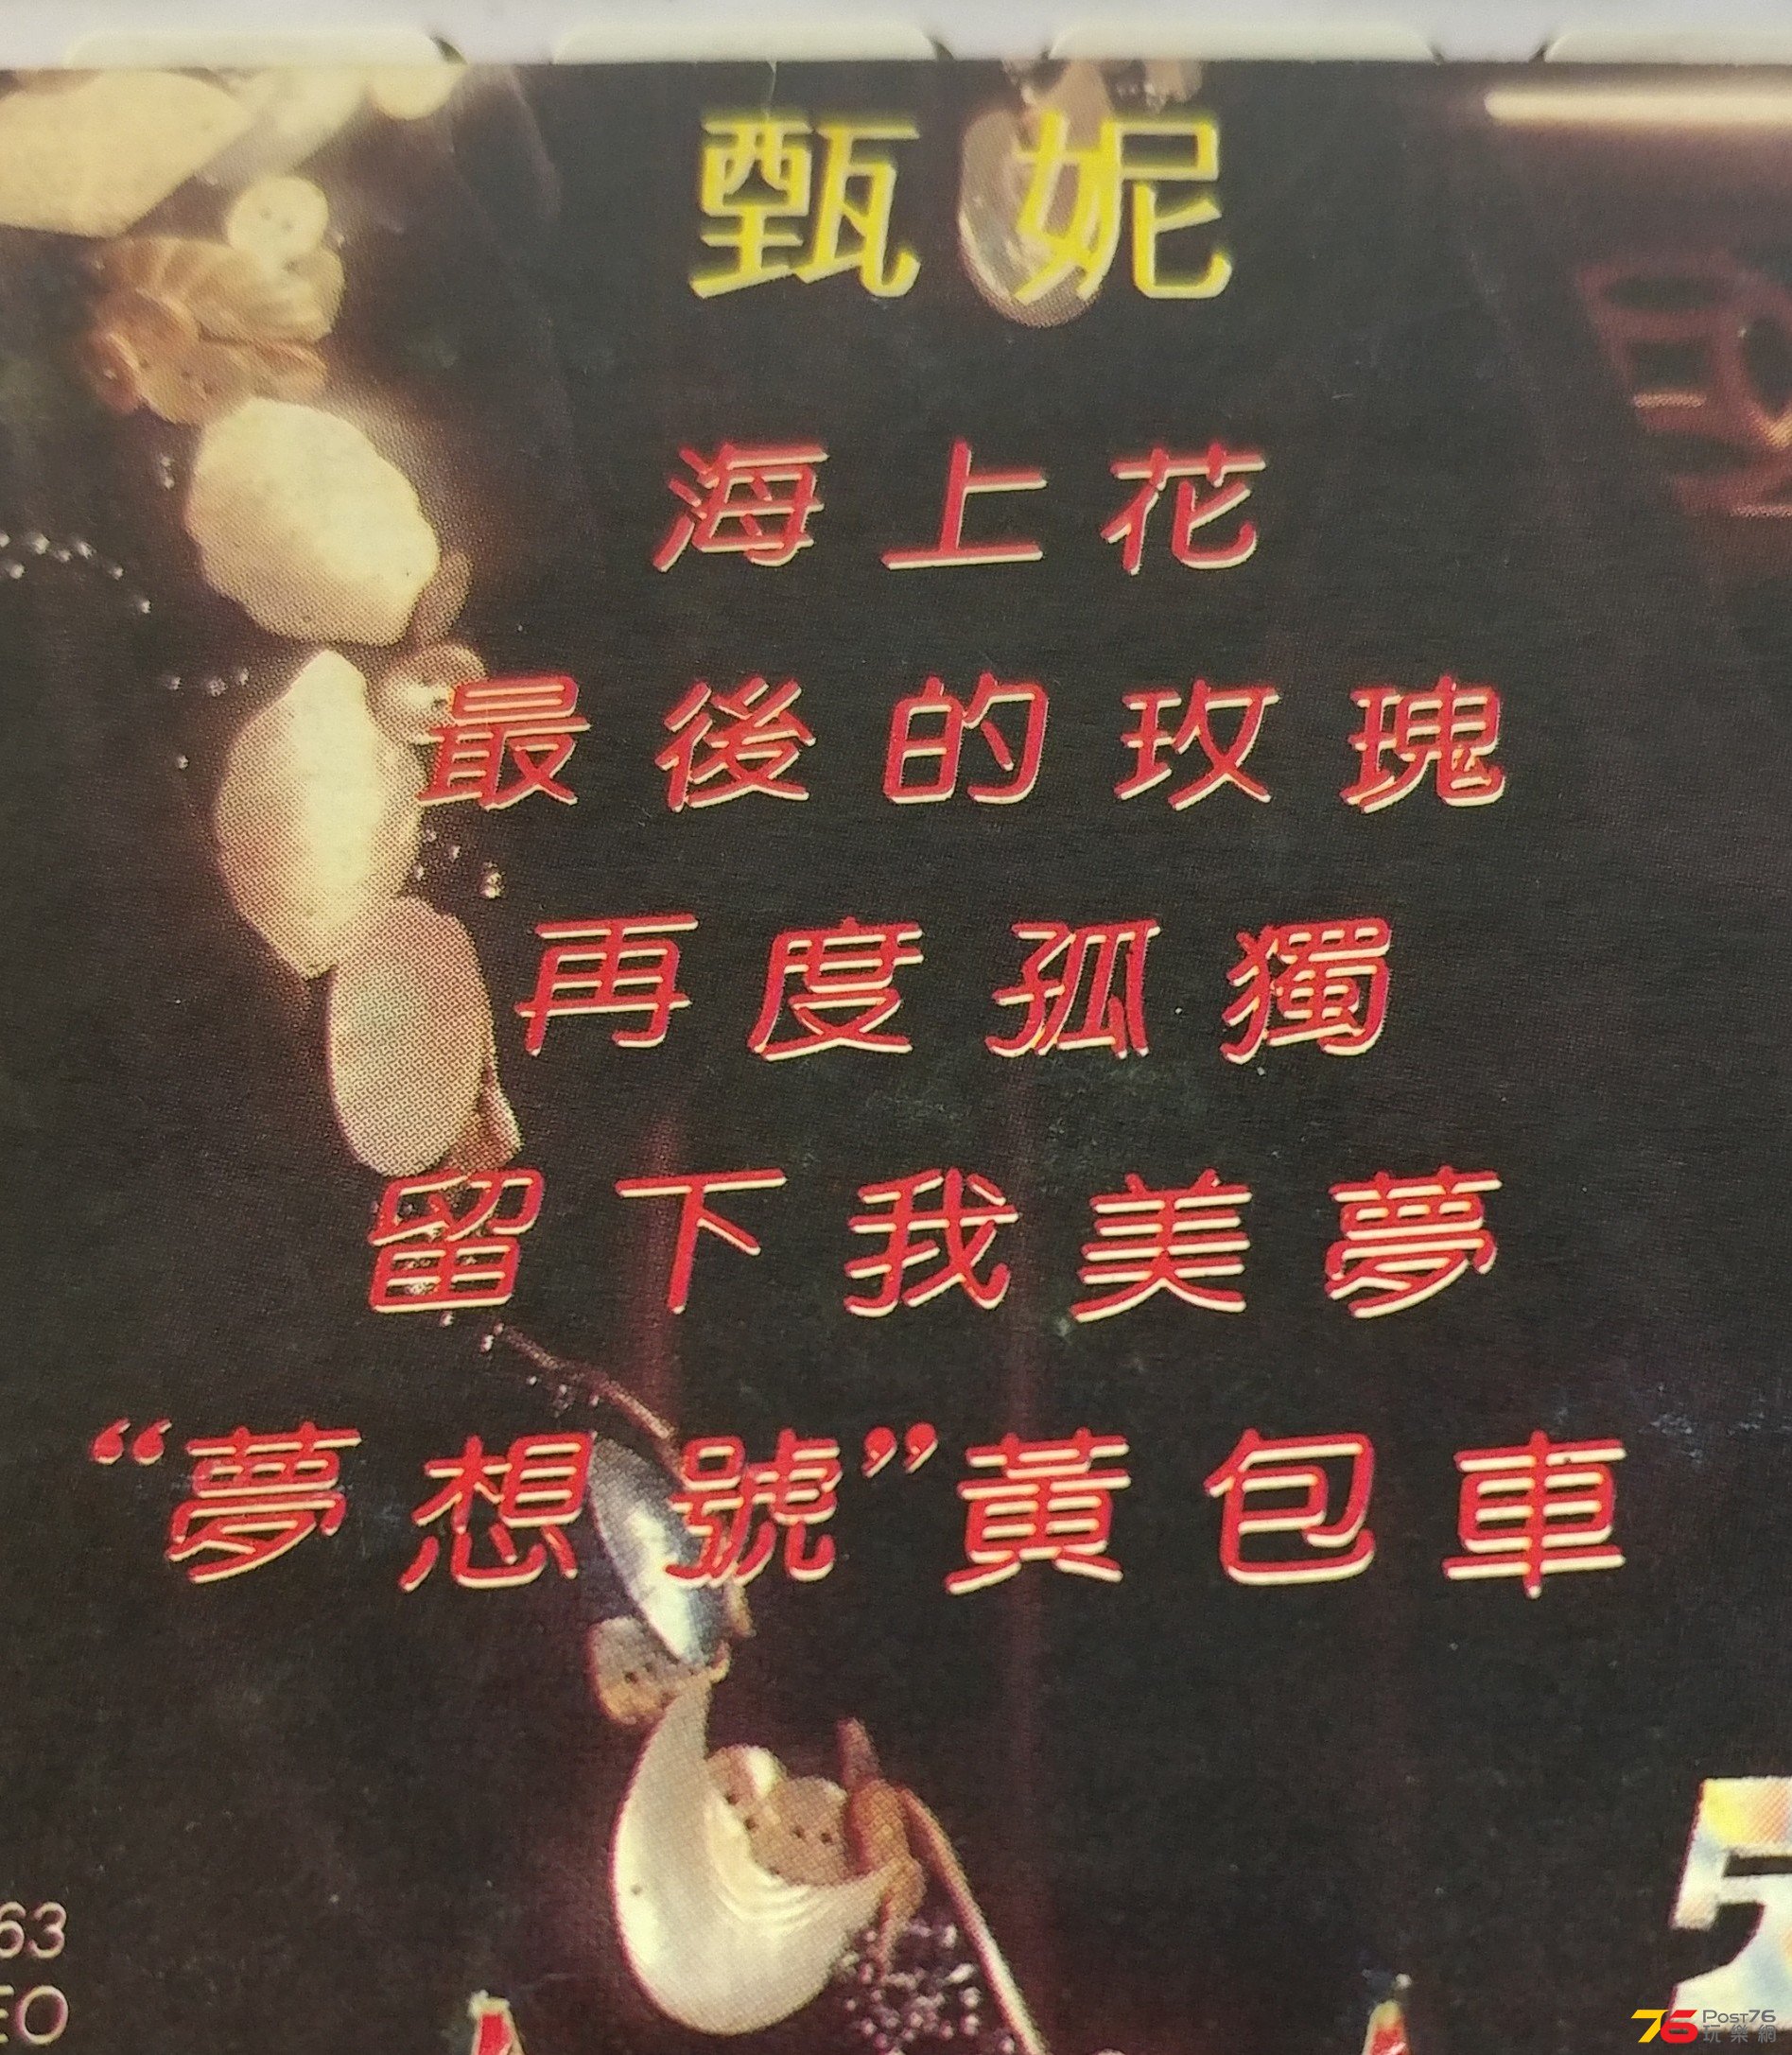 甄妮
海上花
最後的玫瑰
再度孤獨
留下我美夢
“夢想號”黃包車
63
EO
5
76 Post76
玩樂網